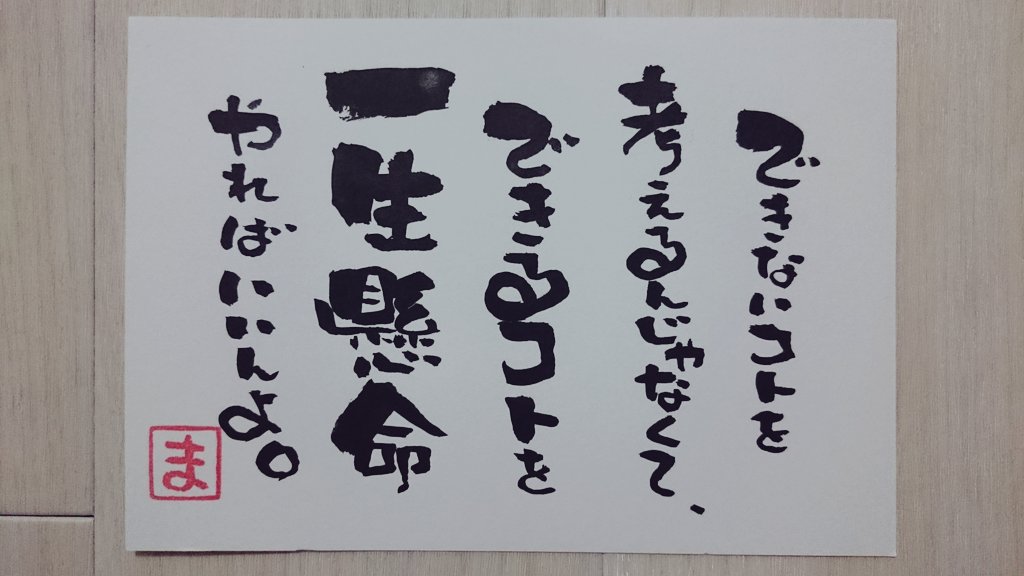 できないコトを
考えるんじゃなくて、
できるコトを
一生懸命
やればいいんよ。
ま